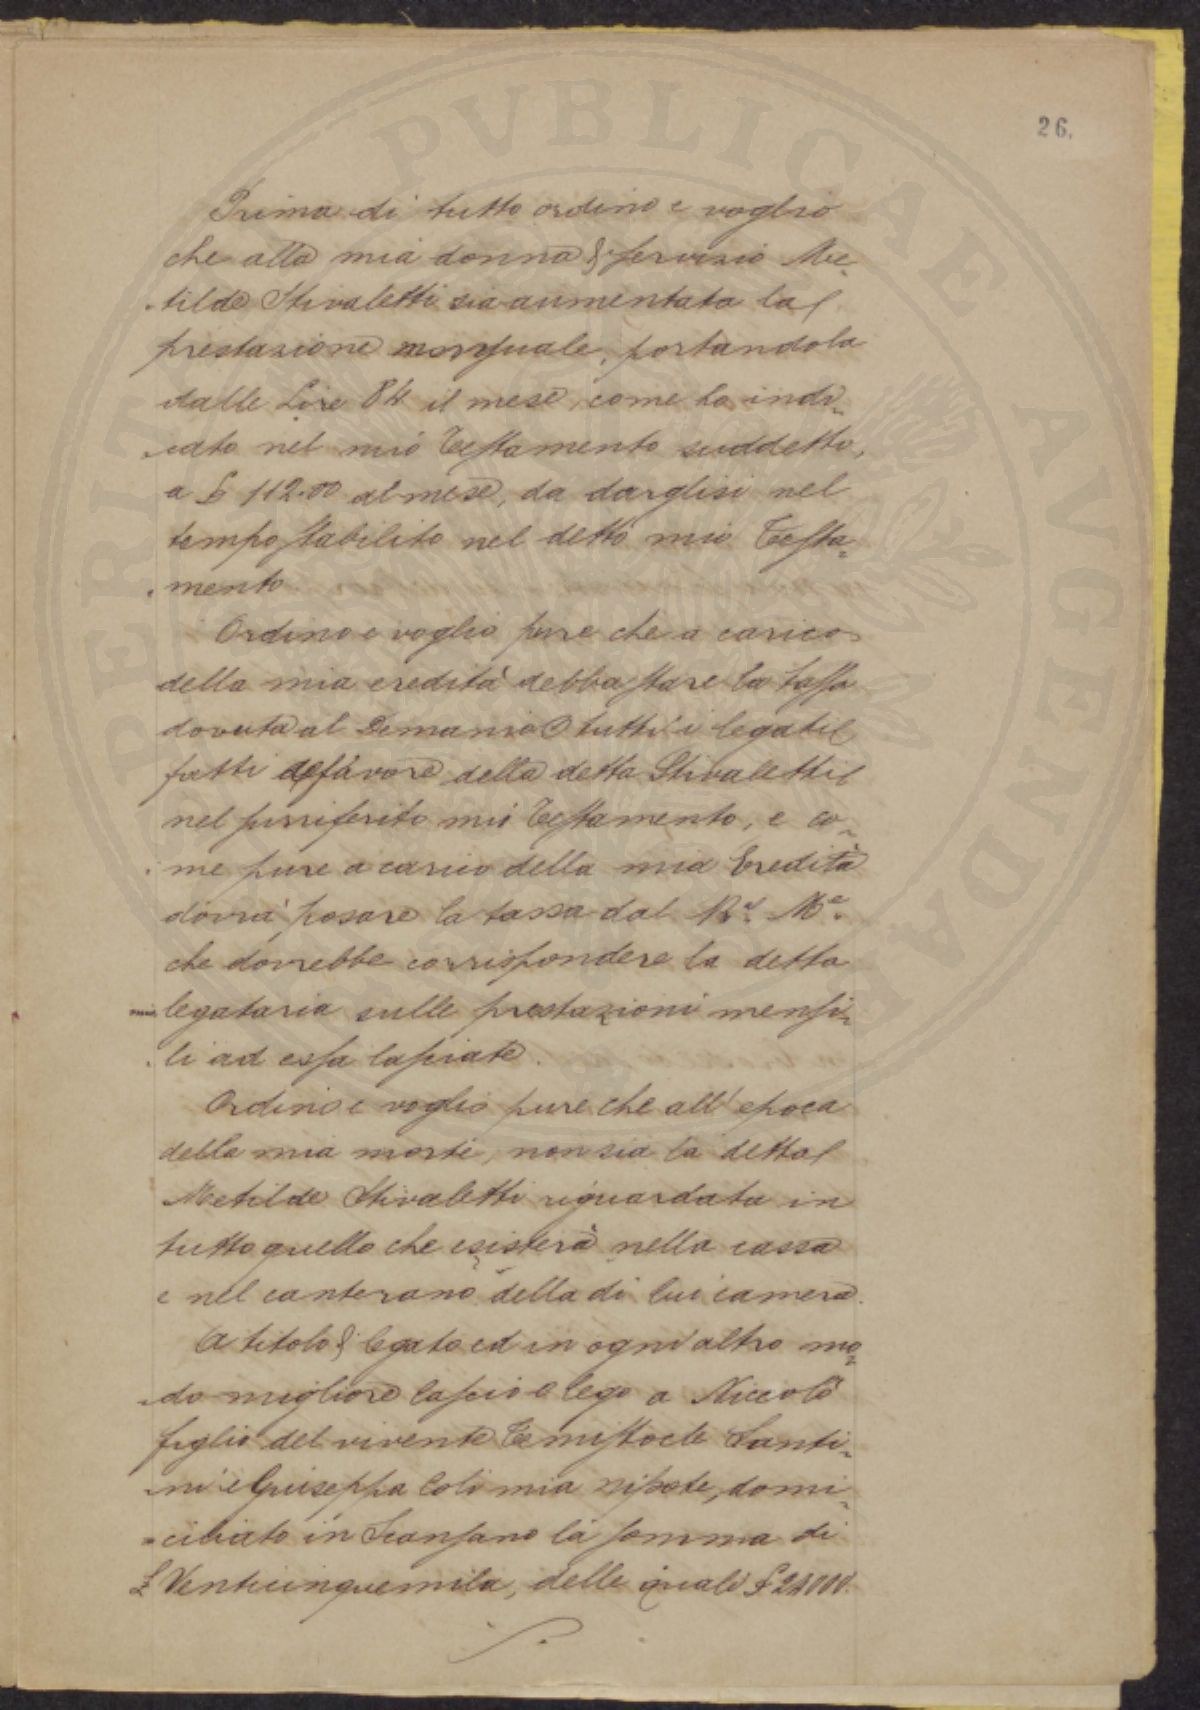 26.
Prima di tutto ordino e voglio
che alla mia donna di servizio Me-
tilde Stivaletti sia aumentata la
prestazione mensuale, portandola
dalle Lire 84 il mese, come ho indi-
cato nel mio Testamento suddetto,
a £ 112.00 al mese, da darglisi nel
tempo stabilito nel detto mio Testa-
mento.
Ordino e voglio pure che a carico
della mia eredità debba stare la tassa
dovuta al Demanio tutti i legati
fatti a favore della detta Stivaletti
nel surriferito mio Testamento, e co-
me pure a carico della mia Eredità
dovrà posare la tassa dal
che dovrebbe corrispondere la detta
legataria sulle prestazioni mensi-
li ad essa lasciate.
Ordino e voglio pure che all'epoca
della mia morte, non sia la detta
Metilde Stivaletti riguardata in
tutto quello che esisterà nella cassa
e nel canterano della di lui camera.
A titolo di legato ed in ogni altro mo-
do migliore lascio e lego a Niccolò
figlio del vivente Temistocle Santi-
ni e Giuseppa Coli mia nipote, domi-
ciliato in Scansano la somma di
£ Venticinquemila, delle quali £ 24000.
PERITVRA PVBLICAE AVCENDAE